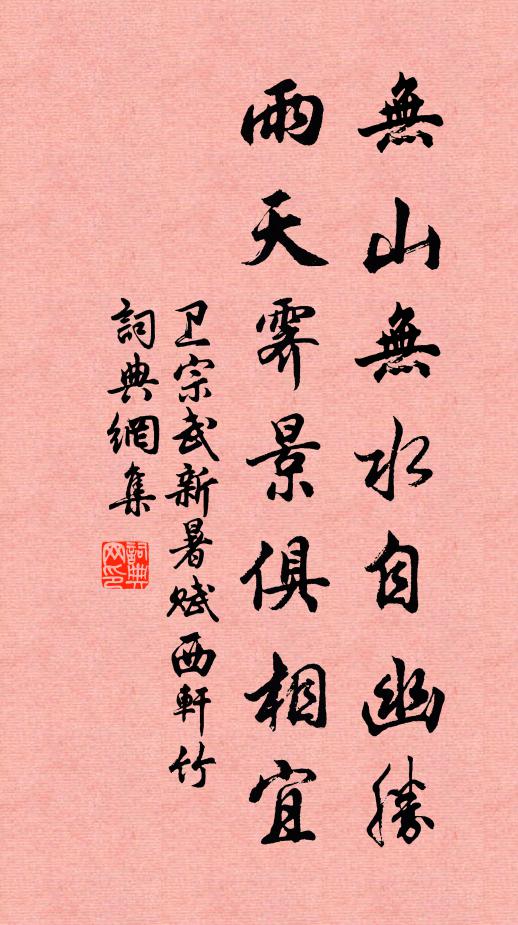 無山無水自幽勝
雨天霽景俱相宜
卫宗武新暑賦西軒竹
詞典網集
詞典网印